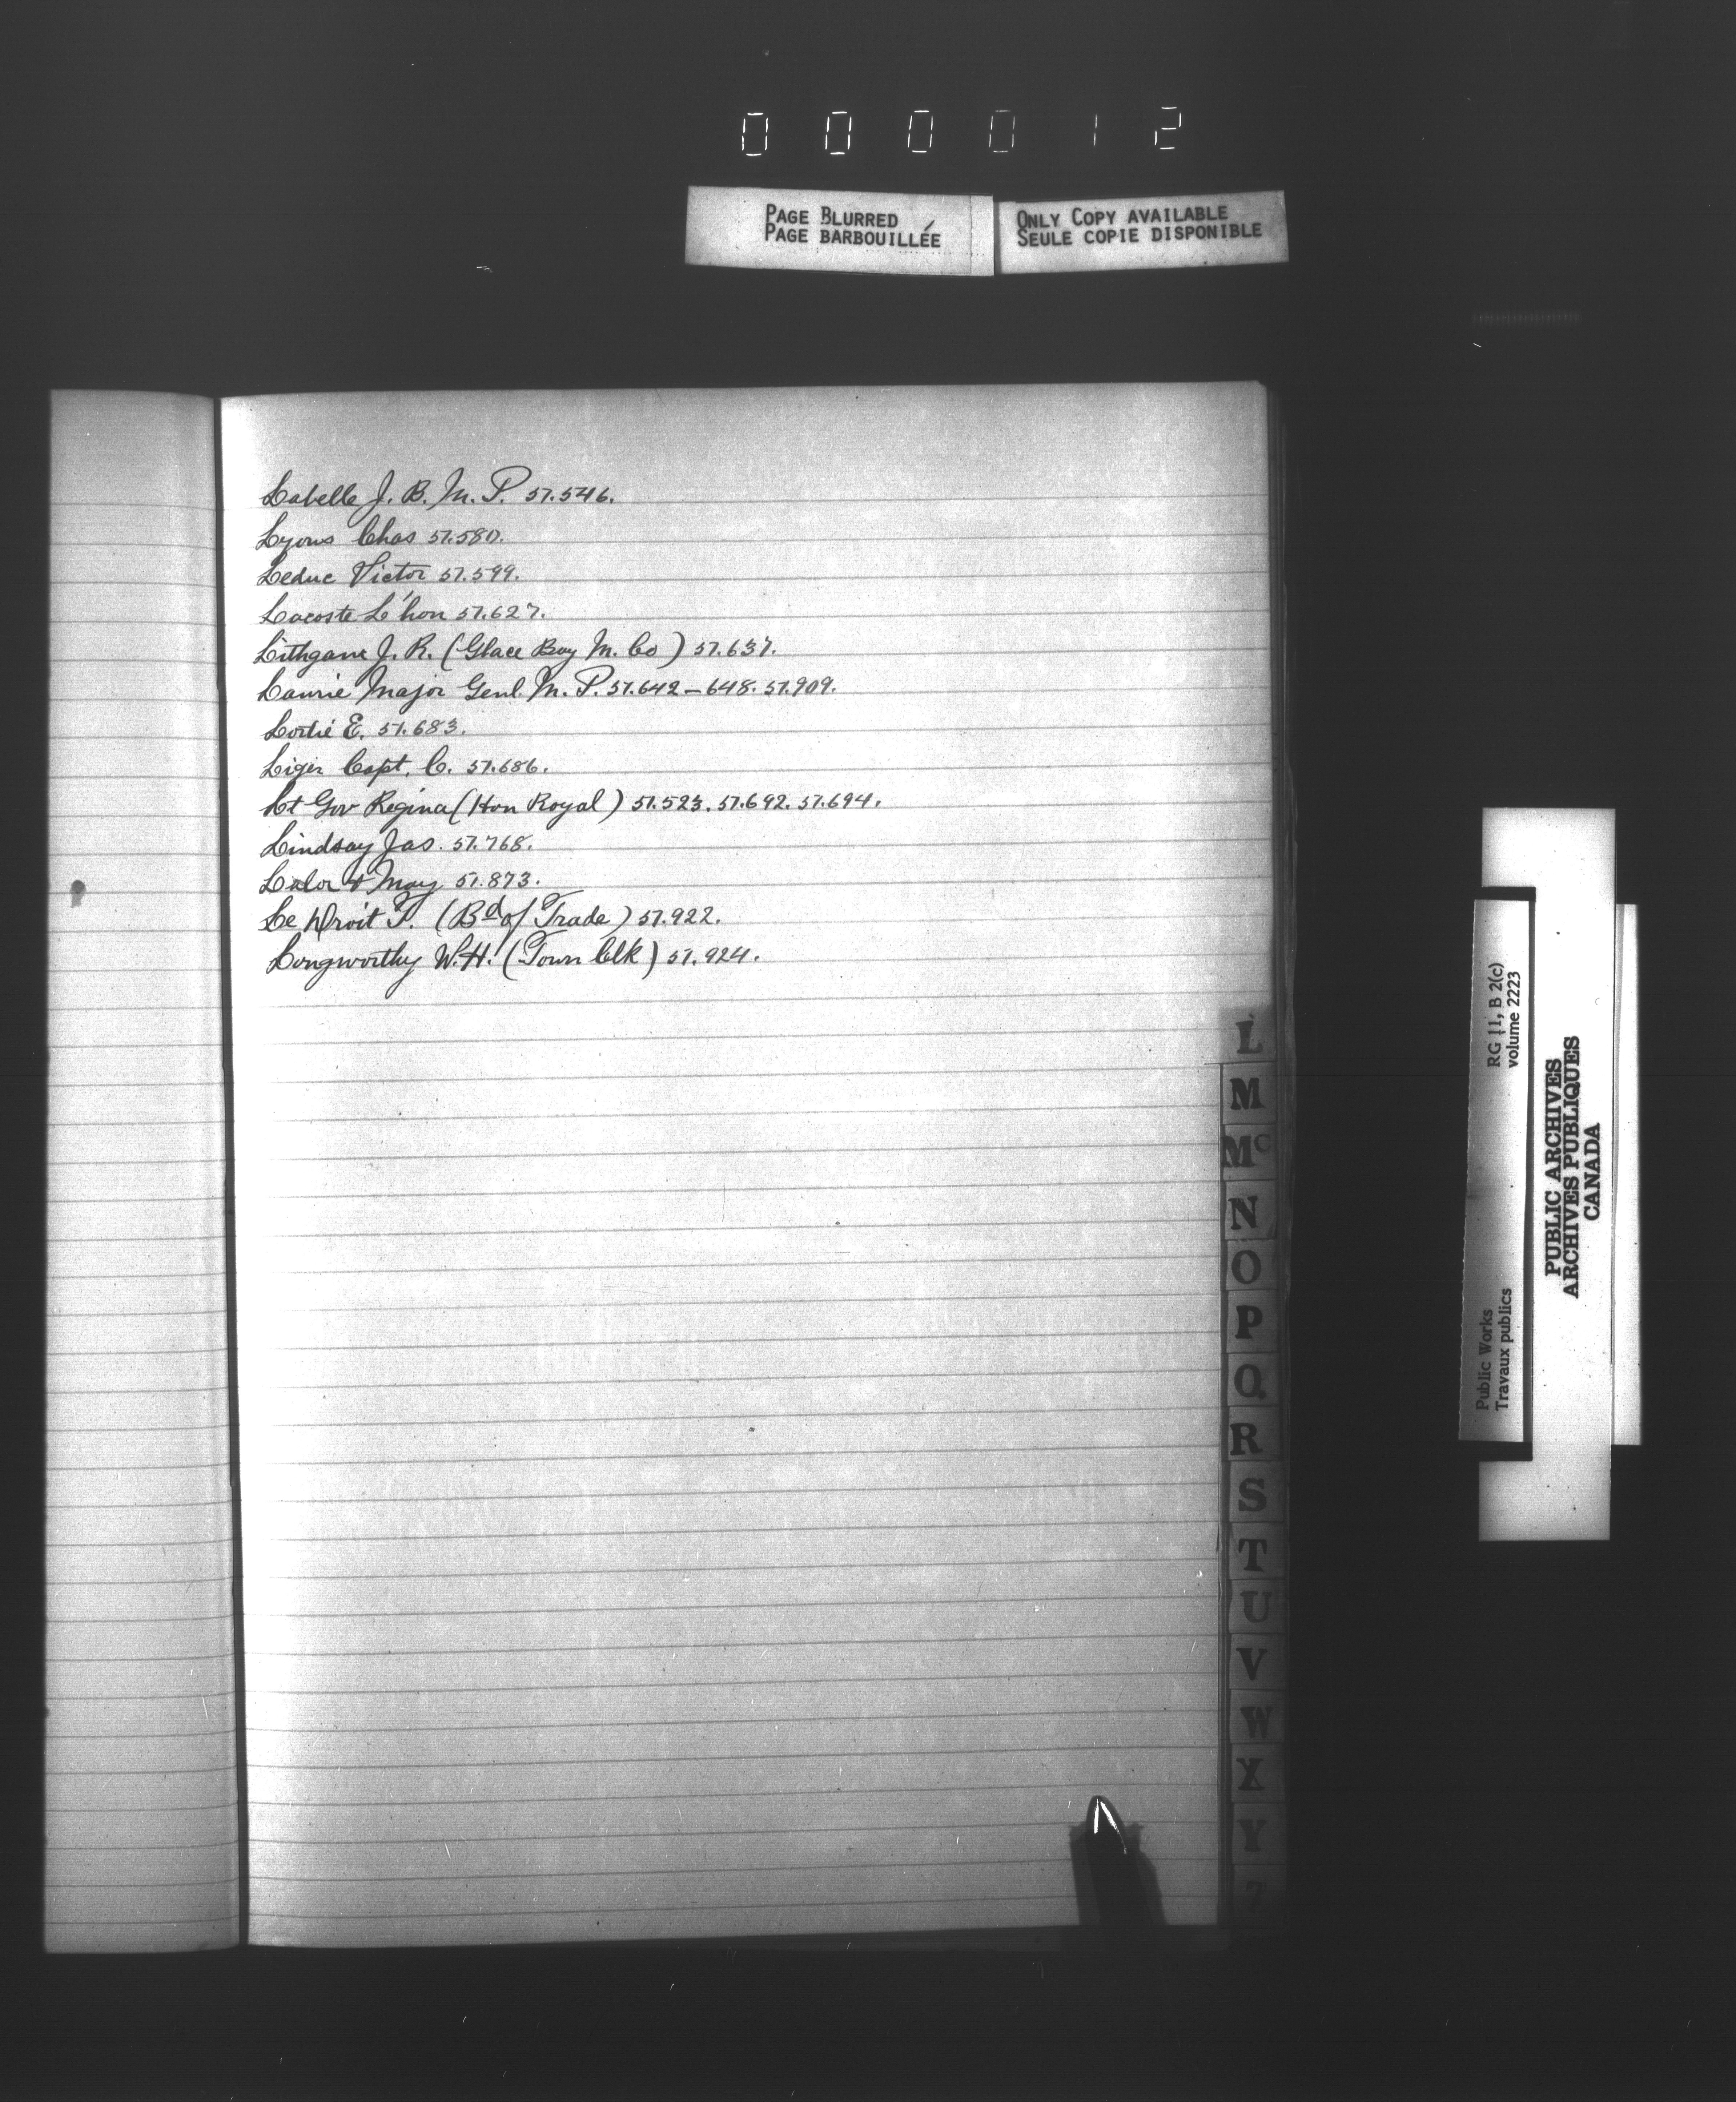 000012
PAGE BLURRED
PAGE BARBOUILLÉE
ONLY COPY AVAILABLE
SEULE COPIE DISPONIBLE
Labelle J. B. M. P. 57.546.
Lyons Chas 57.580.
Leduc Victor 57.599.
Lacoste L'hon 57.627.
Lithgow J. R. (Glace Bay M. Co) 57.637.
Laurie Major Genl. M. P. 57.642-648. 57.909.
Lortié E. 57.683.
Liger Capt. C. 57.686.
Lt Gov Regina (Hon Royal) 57.523. 57.692. 57.694.
Lindsay Jas. 57.768.
Lalor & May 57.873.
Le Droit T. (Bd of Trade) 57.922.
Longworthy W. H. (Town Clk) 57.924.
L
M
Mc
N
O
P
Q
R
S
T
U
V
W
X
Y
Public Works
Travaux publics
RG 11, B 2(c)
volume 2223
PUBLIC ARCHIVES
ARCHIVES PUBLIQUES
CANADA